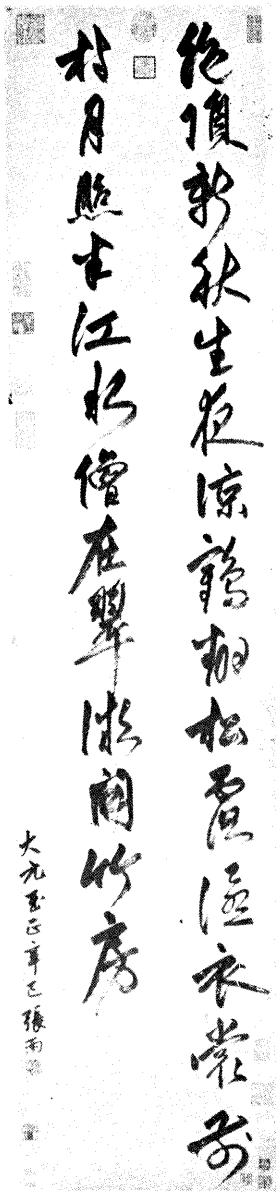 絕頂新秋生夜涼鶴翻松露濕衣裳前
村月照半江水僧在翠微開竹房
大元至正辛巳張雨